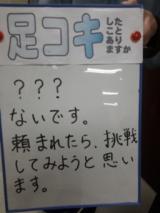 足コキ
したこと
ありますか
？？？
ないです。
頼まれたら、挑戦
してみようと思い
ます。